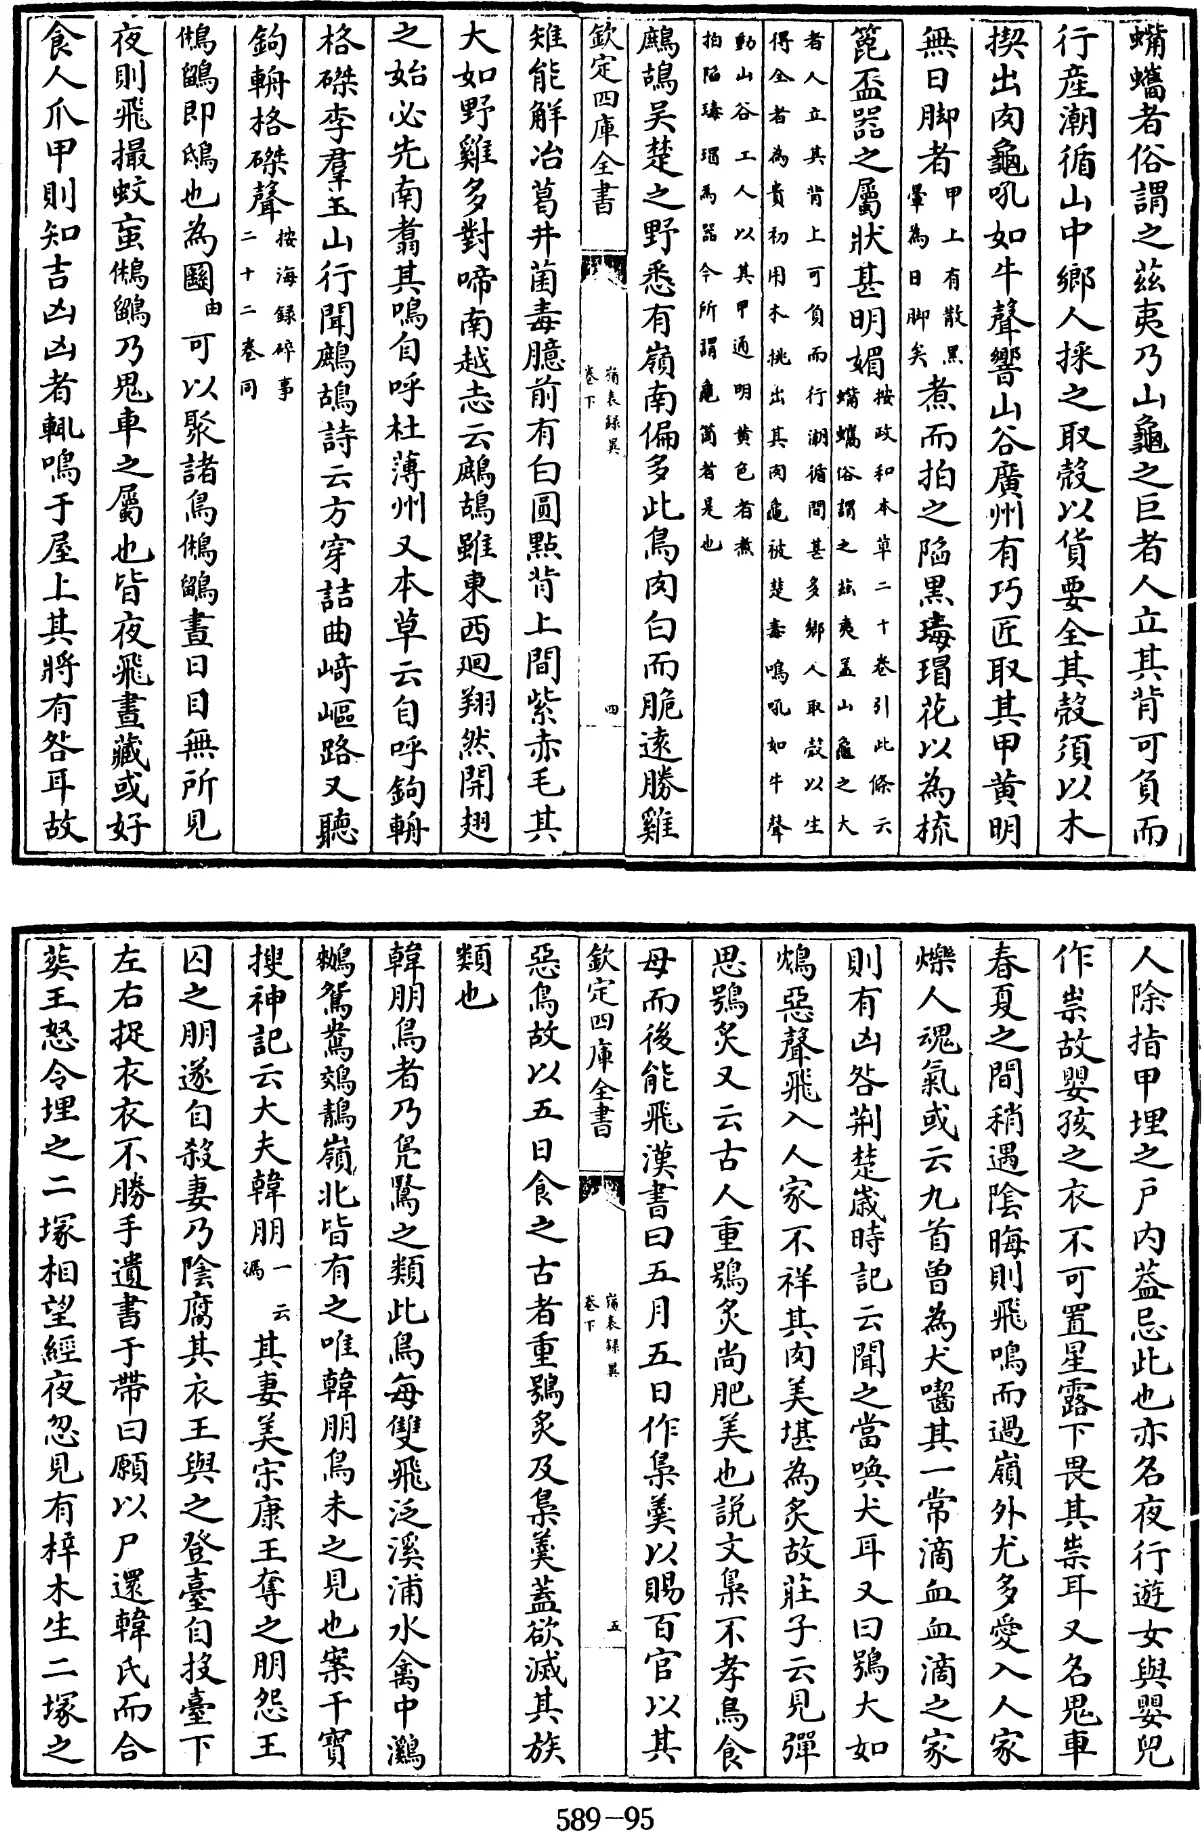 蟕蠵者俗謂之茲夷乃山龜之巨者人立其背可負而
行産潮循山中鄉人採之取殼以貨要全其殼須以木
楔出肉龜吼如牛聲響山谷廣州有巧匠取其甲黄明
無日脚者甲上有散黒暈為日脚矣煮而拍之陷黒瑇瑁花以為梳
篦盃器之屬狀甚明媚按政和本草二十卷引此條云蟕蠵俗謂之茲夷盖山龜之大
者人立其背上可負而行潮循間甚多鄉人取殼以生得全者為貴初用木挑出其肉龜被楚毒鳴吼如牛聲
動山谷工人以其甲通明黄色者煮拍陷瑇瑁為器今所謂龜筩者是也
鷓鴣吴楚之野悉有嶺南偏多此鳥肉白而脆逺勝雞
欽定四庫全書
嶺表録異
卷下
四
雉能解冶葛井菌毒臆前有白圓點背上間紫赤毛其
大如野雞多對啼南越志云鷓鴣雖東西迴翔然開翅
之始必先南翥其鳴自呼杜薄州又本草云自呼鉤輈
格磔李羣玉山行聞鷓鴣詩云方穿詰曲崎嶇路又聽
鉤輈格磔聲按海録碎事二十二卷同
鵂鶹即鴟也為圝由可以聚諸鳥鵂鶹晝日目無所見
夜則飛撮蚊䖟鵂鶹乃鬼車之屬也皆夜飛晝藏或好
食人爪甲則知吉凶凶者輒鳴于屋上其將有咎耳故
人除指甲埋之户内葢忌此也亦名夜行遊女與嬰兒
作祟故嬰孩之衣不可置星露下畏其祟耳又名鬼車
春夏之間稍遇陰晦則飛鳴而過嶺外尤多愛入人家
爍人魂氣或云九首曽為犬嚙其一常滴血血滴之家
則有凶咎荆楚嵗時記云聞之當喚犬耳又曰鴞大如
鴆惡聲飛入人家不祥其肉美堪為炙故莊子云見彈
思鴞炙又云古人重鴞炙尚肥美也説文梟不孝鳥食
母而後能飛漢書曰五月五日作梟羹以賜百官以其
欽定四庫全書
嶺表録異
卷下
五
惡鳥故以五日食之古者重鴞炙及梟羹蓋欲滅其族
類也
韓朋鳥者乃鳬鷖之類此鳥每雙飛泛溪浦水禽中鸂
鶒鴛鴦鵁鶄嶺北皆有之唯韓朋鳥未之見也案干寳
搜神記云大夫韓朋一云馮其妻美宋康王奪之朋怨王
囚之朋遂自殺妻乃陰腐其衣王與之登臺自投臺下
左右捉衣衣不勝手遺書于帶曰願以尸還韓氏而合
葬王怒令埋之二塚相望經夜忽見有梓木生二塚之
589-95